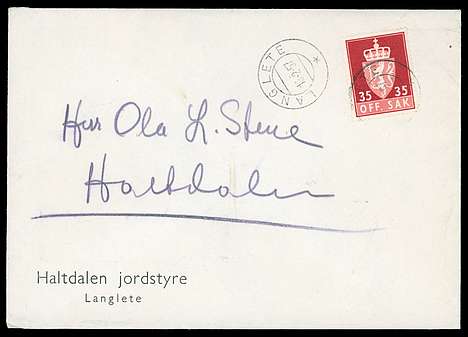 LANGLETE
35 35
OFF. SAK
Herr Ola L. Stene
Haltdalen
Haltdalen jordstyre
Langlete